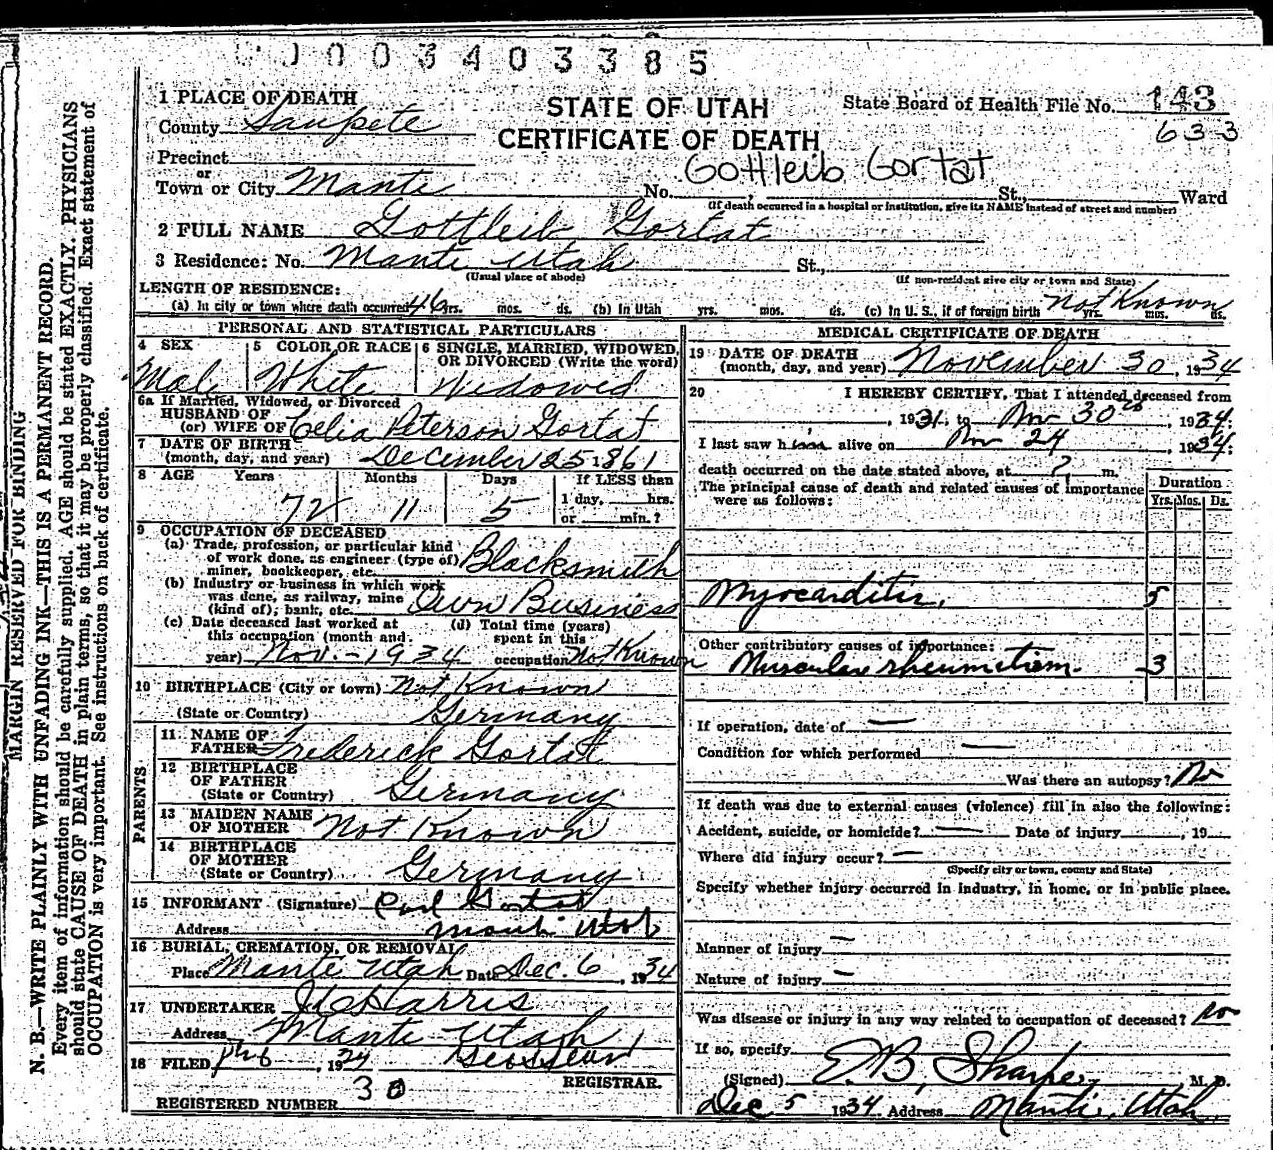 0003403385
1 PLACE OF DEATH
STATE OF UTAH
CERTIFICATE OF DEATH
State Board of Health File No. 143
633
County Sanpete
Precinct
or
Town or City Manti No. Gottleib Gortat St., Ward
(If death occurred in a hospital or institution, give its NAME instead of street and number)
2 FULL NAME Gottleib Gortat
3 Residence: No. Manti Utah St.,
(Usual place of abode) (If non-resident give city or town and State)
LENGTH OF RESIDENCE:
(a) In city or town where death occurred 46 yrs. mos. ds. (b) In Utah yrs. mos. ds. (c) In U. S., if of foreign birth Not Known yrs. mos. ds.
PERSONAL AND STATISTICAL PARTICULARS
4 SEX Male
5 COLOR OR RACE White
6 SINGLE, MARRIED, WIDOWED, OR DIVORCED (Write the word) Widowed
6a If Married, Widowed, or Divorced
HUSBAND OF
(or) WIFE OF Celia Peterson Gortat
7 DATE OF BIRTH
(month, day, and year) December 25 1861
8 AGE Years 72 Months 11 Days 5 If LESS than
1 day, hrs.
or min.?
9 OCCUPATION OF DECEASED
(a) Trade, profession, or particular kind
of work done, as engineer (type of)
miner, bookkeeper, etc. Blacksmith
(b) Industry or business in which work
was done, as railway, mine
(kind of); bank, etc. Own Business
(c) Date deceased last worked at
this occupation (month and
year) Nov. - 1934
(d) Total time (years)
spent in this
occupation Not Known
10 BIRTHPLACE (City or town) Not Known
(State or Country) Germany
PARENTS
11 NAME OF
FATHER Frederick Gortat
12 BIRTHPLACE
OF FATHER
(State or Country) Germany
13 MAIDEN NAME
OF MOTHER Not Known
14 BIRTHPLACE
OF MOTHER
(State or Country) Germany
15 INFORMANT (Signature) Gortat
Address Manti Utah
16 BURIAL, CREMATION, OR REMOVAL
Place Manti Utah Date Dec. 6, 1934
17 UNDERTAKER Harris
Address Manti Utah
18 FILED 6, 19
REGISTRAR.
30
REGISTERED NUMBER
MEDICAL CERTIFICATE OF DEATH
19 DATE OF DEATH
(month, day, and year) November 30, 1934
20 I HEREBY CERTIFY, That I attended deceased from
, 1931, to Nov 30th, 1934;
I last saw h alive on Nov 24, 1934;
death occurred on the date stated above, at ? m.
The principal cause of death and related causes of importance
were as follows:
Duration
Yrs. Mos. Ds.
Myocarditis, 5
Other contributory causes of importance:
Muscular rheumatism. 3
If operation, date of —
Condition for which performed —
Was there an autopsy? No
If death was due to external causes (violence) fill in also the following:
Accident, suicide, or homicide? — Date of injury , 19
Where did injury occur? —
(Specify city or town, county and State)
Specify whether injury occurred in industry, in home, or in public place.
Manner of injury —
Nature of injury —
Was disease or injury in any way related to occupation of deceased? No
If so, specify
(Signed) E.B. Sharpe, M. D.
Dec 5 1934 Address Manti, Utah.
MARGIN RESERVED FOR BINDING
N. B.—WRITE PLAINLY WITH UNFADING INK—THIS IS A PERMANENT RECORD.
Every item of information should be carefully supplied. AGE should be stated EXACTLY. PHYSICIANS
should state CAUSE OF DEATH in plain terms, so that it may be properly classified. Exact statement of
OCCUPATION is very important. See instructions on back of certificate.